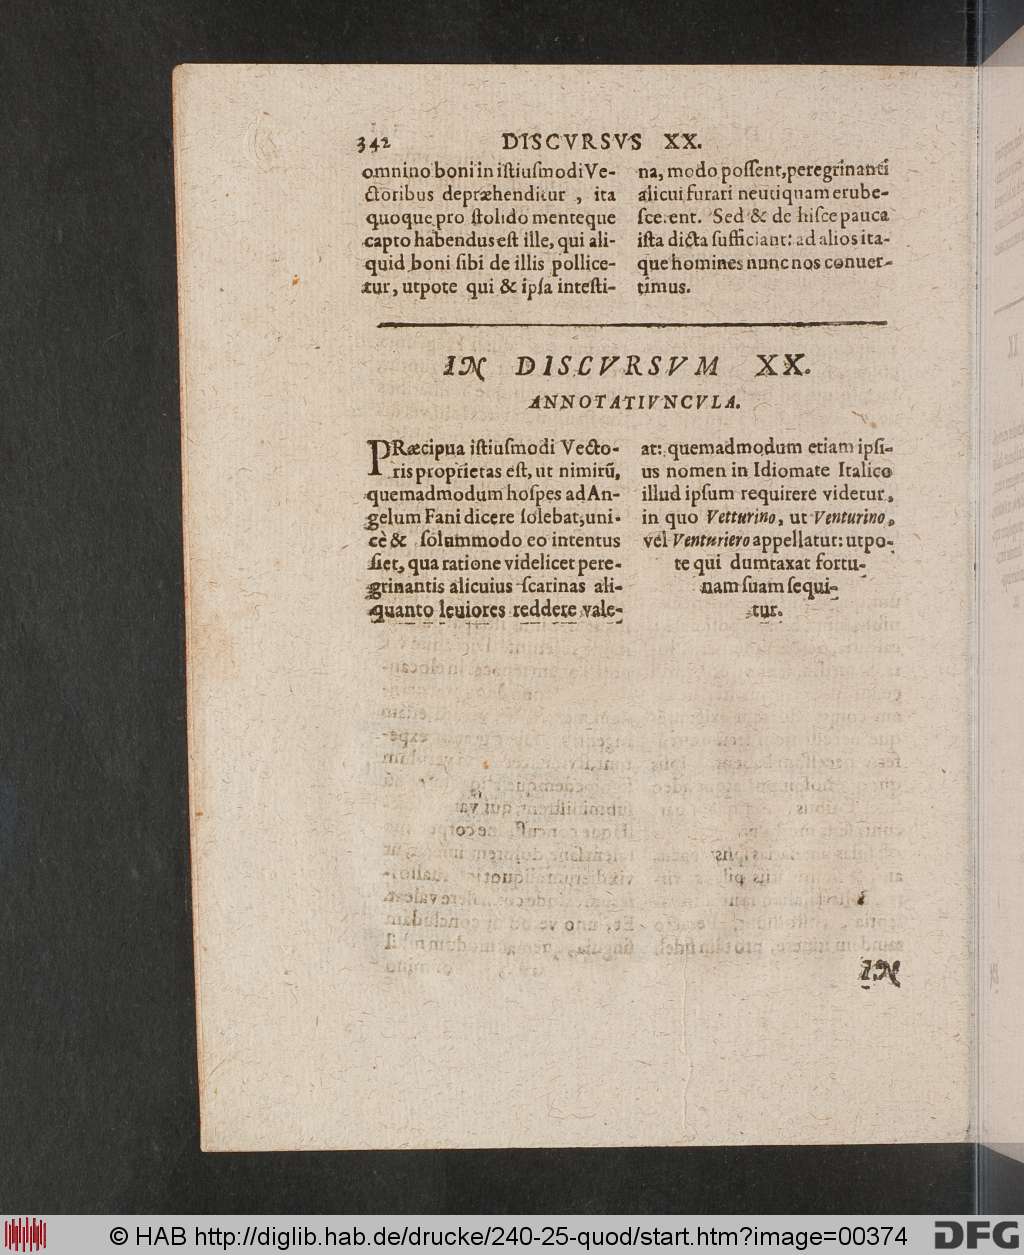 342 DISCVRSVS XX.
omnino boni in iſtiuſmodi Ve-
ctoribus depræhenditur , ita
quoque pro ſtolido menteque
capto habendus eſt ille, qui ali-
quid boni ſibi de illis pollice-
tur, utpote qui & ipſa inteſti-
na, modo poſſent, peregrinanti
alicui furari neutiquam erube-
ſcerent. Sed & de hiſce pauca
iſta dicta ſufficiant: ad alios ita-
que homines nunc nos conuer-
timus.
IN DISCVRSVM XX.
ANNOTATIVNCVLA.
PRæcipua iſtiuſmodi Vecto-
ris proprietas eſt, ut nimirũ,
quemadmodum hoſpes ad An-
gelum Fani dicere ſolebat, uni-
cè & ſolummodo eo intentus
ſiet, qua ratione videlicet pere-
grinantis alicuius ſcarinas ali-
quanto leuiores reddere vale-
at: quemadmodum etiam ipſi-
us nomen in Idiomate Italico
illud ipſum requirere videtur,
in quo Vetturino, ut Venturino,
vel Venturiero appellatur: utpo-
te qui dumtaxat fortu-
nam ſuam ſequi-
tur.
IN
© HAB http://diglib.hab.de/drucke/240-25-quod/start.htm?image=00374
DFG